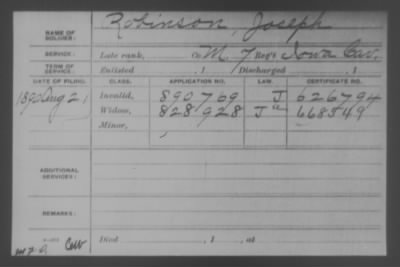 NAME OF SOLDIER: Robinson, Joseph
SERVICE: Late rank, Co. M, 7 Reg't Iowa Cav.
TERM OF SERVICE: Enlisted , 1 Discharged , 1
DATE OF FILING. CLASS. APPLICATION NO. LAW. CERTIFICATE NO.
1890 Aug 21 Invalid, 890769 J 626794
Widow, 828928 J 668549
Minor,
ADDITIONAL SERVICES:
REMARKS:
Died , 1 , at